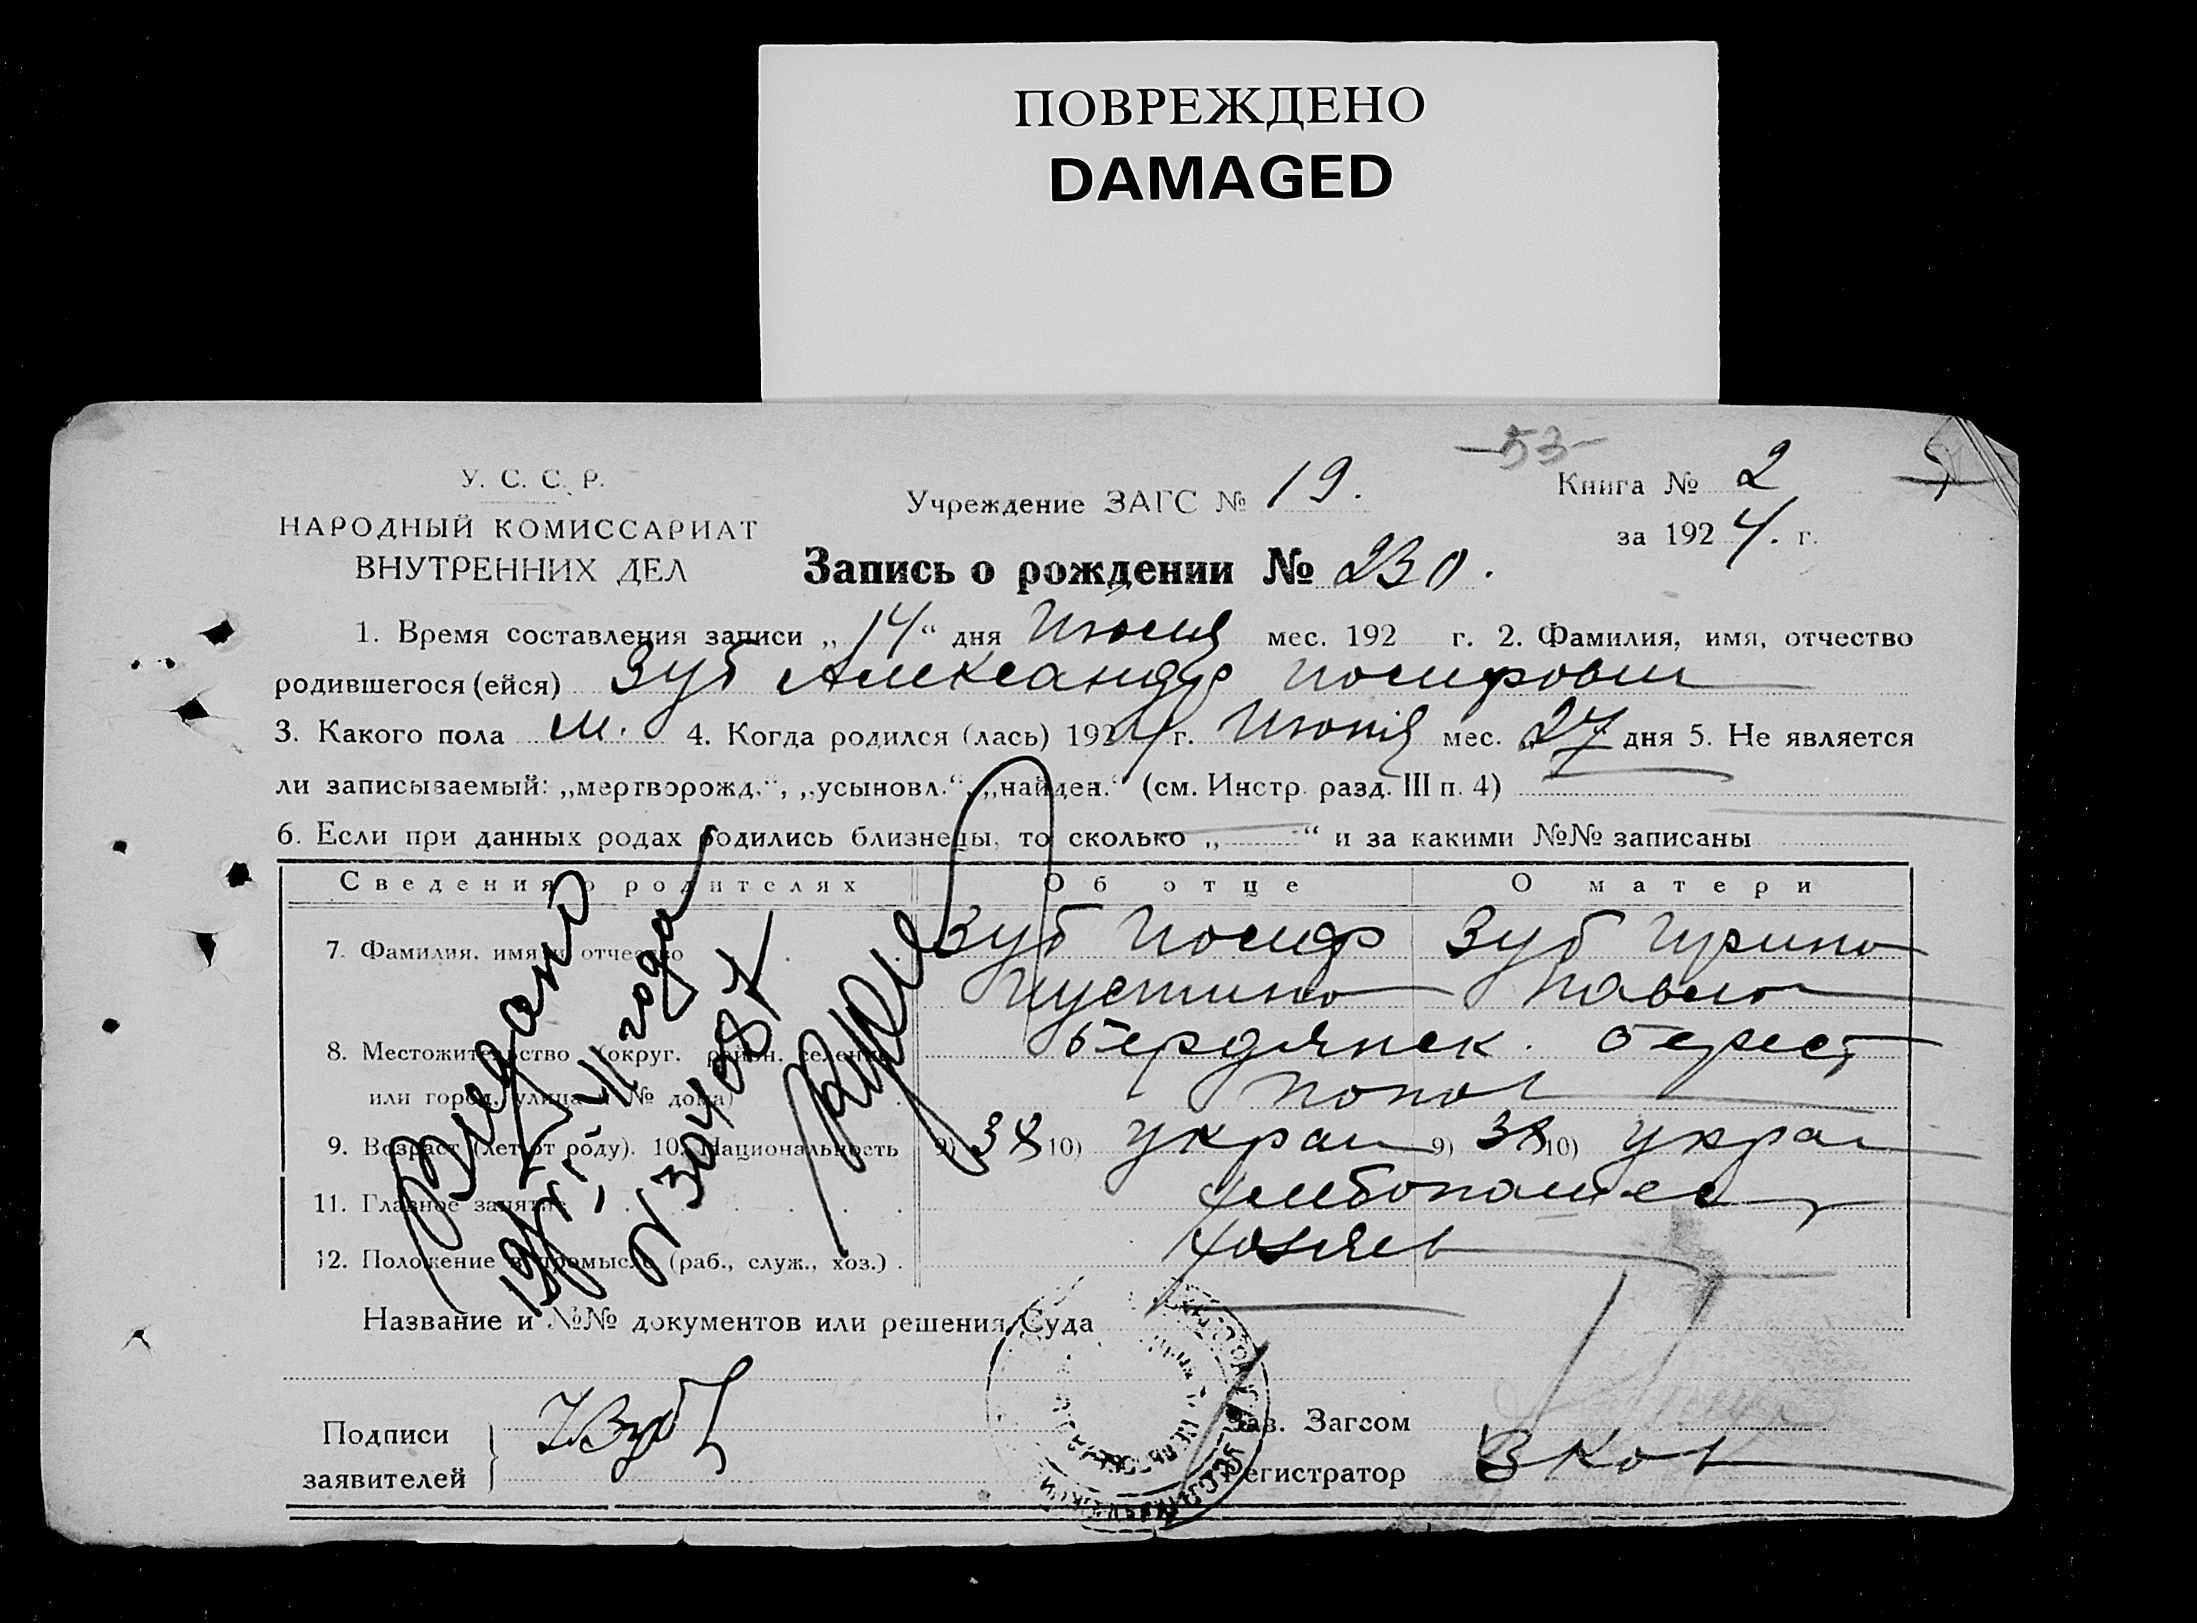 ПОВРЕЖДЕНО
DAMAGED
-53-
У. С. С. Р.
НАРОДНЫЙ КОМИССАРИАТ
ВНУТРЕННИХ ДЕЛ
Учреждение ЗАГС № 19.
Книга № 2
за 1924. г.
Запись о рождении № 230.
1. Время составления записи „14“ дня Июля мес. 192 г. 2. Фамилия, имя, отчество
родившегося (ейся) Зуб Александр Иосифович
3. Какого пола м. 4. Когда родился (лась) 1924 г. Июня мес. „27 дня 5. Не является
ли записываемый: „мертворожд.“, „усыновл.“, „найден.“ (см. Инстр. разд. III п. 4)
6. Если при данных родах родились близнецы, то сколько „ “ и за какими №№ записаны
Сведения о родителях Об отце О матери
7. Фамилия, имя и отчество Зуб Иосиф Зуб Ирина
Иустино Павло
8. Местожительство (округ, район, селение Бердянск. берест
или город, улица и № дома)
9. Возраст (лет от роду). 10. Национальность 9) 38 10) украи 9) 38 10) украи
11. Главное занятие Хлебопашес
12. Положение в промысле (раб., служ., хоз.) Хозяев
Название и №№ документов или решения Суда
Подписи
заявителей
И Зуб
Зав. Загсом
Регистратор